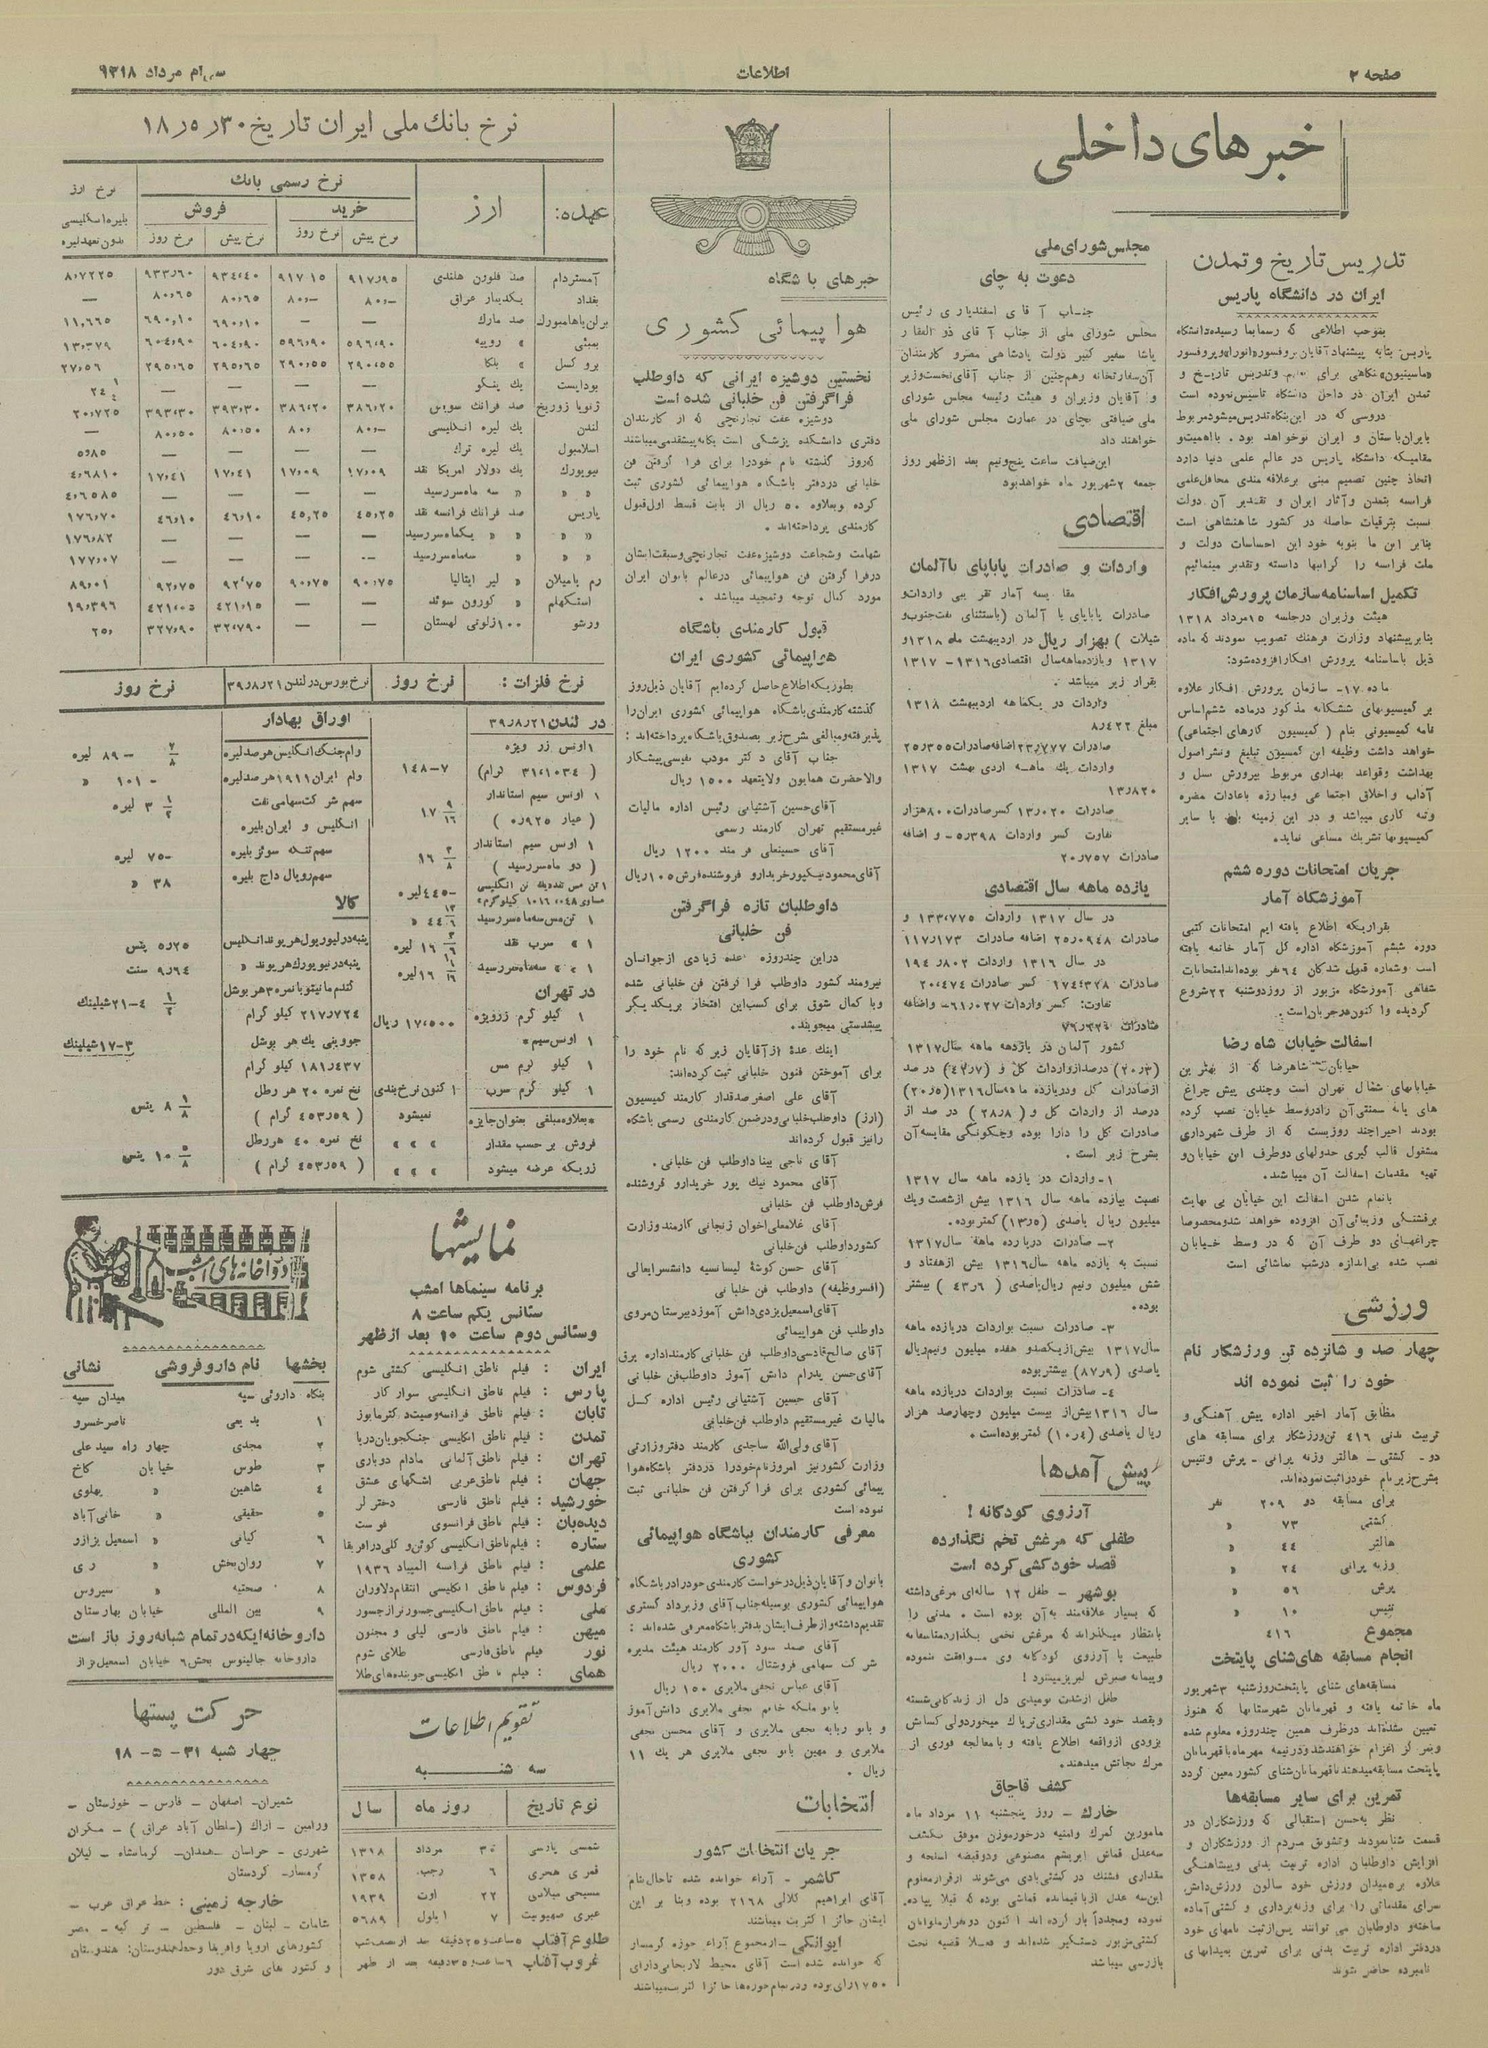 صفحه ۲
اطلاعات
سی‌ام مرداد ۱۳۱۸
خبرهای داخلی
تدریس تاریخ و تمدن
ایران در دانشگاه پاریس
بموجب اطلاعی که رسما بما رسیده دانشگاه
تمدن ایران در داخل دانشگاه تاسیس نموده است
دروسی که در این بنگاه تدریس میشود مربوط
بایران باستان و ایران نو خواهد بود . با اهمیت و
مقامیکه دانشگاه پاریس در عالم علمی دنیا دارد
اتخاذ چنین تصمیم مبنی بر علاقه مندی محافل علمی
فرانسه بتمدن و آثار ایران و تقدیر آن دولت
نسبت بترقیات حاصله در کشور شاهنشاهی است
بنابر این ما بنوبه خود این احساسات دولت و
ملت فرانسه را گرانبها دانسته و تقدیر مینمائیم
تکمیل اساسنامه سازمان پرورش افکار
هیئت وزیران در جلسه ۱۵ مرداد ۱۳۱۸
بنابر پیشنهاد وزارت فرهنگ تصویب نمودند که ماده
ذیل باساسنامه پرورش افکار افزوده شود:
ماده ۱۷- سازمان پرورش افکار علاوه
بر کمیسیونهای ششگانه مذکور در ماده ششم اساس
نامه کمیسیونی بنام ( کمیسیون کارهای اجتماعی)
خواهد داشت وظیفه این کمسیون تبلیغ و نشر اصول
بهداشت و قواعد بهداری مربوط بپرورش نسل و
آداب و اخلاق اجتماعی و مبارزه با عادات مضره
وتبه کاری میباشد و در این زمینه باید با سایر
کمیسیونها تشریک مساعی نماید.
جریان امتحانات دوره ششم
آموزشگاه آمار
بقراریکه اطلاع یافته ایم امتحانات کتبی
دوره ششم آموزشگاه اداره کل آمار خاتمه یافته
است و شماره قبول شدگان ۶۴ نفر بوده اند امتحانات
شفاهی آموزشگاه مزبور از روز دوشنبه ۲۲ شروع
گردیده و اکنون هم در جریان است .
اسفالت خیابان شاه رضا
خیابان شاهرضا که از بهترین
خیابانهای شمال تهران است و چندی پیش چراغ
های پایه سمنتی آن را در وسط خیابان نصب کرده
بودند اخیرا چند روزیست که از طرف شهرداری
مشغول قالب گیری جدولهای دو طرف این خیابان و
تهیه مقدمات اسفالت آن میباشند.
با تمام شدن اسفالت این خیابان بی نهایت
برقشنگی و زیبائی آن افزوده خواهد شد و مخصوصا
چراغهای دو طرف آن که در وسط خیابان
نصب شده بی اندازه در شب تماشائی است
ورزشی
چهار صد و شانزده تن ورزشکار نام
خود را ثبت نموده اند
مطابق آمار اخیر اداره پیش آهنگی و
تربیت بدنی ۴۱۶ تن ورزشکار برای مسابقه های
دو- کشتی – هالتر وزنه پرانی – پرش و تنیس
بشرح زیر نام خود را ثبت نموده اند.
برای مسابقه دو ۲۰۹ نفر
کشتی ۷۳ »
هالتر ۴۴ »
وزنه پرانی ۲۴ »
پرش ۵۶ »
تنیس ۱۰ »
مجموع ۴۱۶
انجام مسابقه های شنای پایتخت
مسابقه‌های شنای پایتخت روز شنبه ۳ شهریور
ماه خاتمه یافته و قهرمانان شهرستانها که هنوز
تعیین نشده اند در ظرف همین چند روزه معلوم شده
و بمرکز اعزام خواهند شد و در نیمه مهر ماه با قهرمانان
پایتخت مسابقه میدهند تا قهرمانان شنای کشور معین گردد
تمرین برای سایر مسابقه‌ها
نظر به حسن استقبالی که ورزشکاران در
قسمت شنا نمودند و تشویق مردم از ورزشکاران و
افزایش داوطلبان اداره تربیت بدنی و پیشاهنگی
علاوه بر میدان ورزش خود سالون ورزش دانش
سرای مقدماتی را برای وزنه برداری و کشتی آماده
ساخته و داوطلبان می توانند پس از ثبت نامهای خود
در دفتر اداره تربیت بدنی برای تمرین بمیدانهای
نامبرده حاضر شوند
مجلس شورای ملی
دعوت به چای
جناب آقای اسفندیاری رئیس
مجلس شورای ملی از جناب آقای ذوالفقار
پاشا سفیر کبیر دولت پادشاهی مصر و کارمندان
آن سفارتخانه و هم چنین از جناب آقای نخست وزیر
و آقایان وزیران و هیئت رئیسه مجلس شورای
ملی ضیافتی بچای در عمارت مجلس شورای ملی
خواهند داد
این ضیافت ساعت پنج و نیم بعد از ظهر روز
جمعه ۲ شهریور ماه خواهد بود
اقتصادی
واردات و صادرات پایاپای با آلمان
مقایسه آمار تقریبی واردات و
صادرات پایاپای با آلمان (باستثنای نفت جنوب و
شیلات ) بهزار ریال در اردیبهشت ماه ۱۳۱۸ و
۱۳۱۷ و یازده ماهه سال اقتصادی ۱۳۱۶– ۱۳۱۷
بقرار زیر میباشد .
واردات در یکماهه اردیبهشت ۱۳۱۸
مبلغ ۸٫۴۲۲
صادرات ۲۳٫۷۷۷ اضافه صادرات ۲۵٫۳۵۵
واردات یک ماهه اردی بهشت ۱۳۱۷
۱۳٫۸۲۰
صادرات ۱۳٫۰۲۰ کسر صادرات ۸۰۰ هزار
تفاوت کسر واردات ۵٫۳۹۸- و اضافه
صادرات ۲۰٫۷۵۷
یازده ماهه سال اقتصادی
در سال ۱۳۱۷ واردات ۱۳۳٫۷۷۵ و
صادرات ۲۵٫۰۹۴۸ اضافه صادرات ۱۱۷٫۱۷۳
در سال ۱۳۱۶ واردات ۱۹۴٫۸۰۲
صادرات ۱۷۴٫۳۲۸ کسر صادرات ۲۰٫۴۷۴
تفاوت: کسر واردات ۶۱٫۰۲۷– و اضافه
کشور آلمان در یازده ماهه سال ۱۳۱۷
درصد از واردات کل و (۲۸٫۸ ) در صد از
صادرات کل را دارا بوده و چگونگی مقایسه آن
بشرح زیر است .
۱- واردات در یازده ماهه سال ۱۳۱۷
نسبت بیازده ماهه سال ۱۳۱۶ بیش از شصت و یک
میلیون ریال یا صدی (۱۳٫۵) کمتر بوده.
۲- صادرات در یازده ماهه سال ۱۳۱۷
نسبت به یازده ماهه سال ۱۳۱۶ بیش از هفتاد و
شش میلیون و نیم ریال یا صدی ( ۴۳٫۶ ) بیشتر
بوده.
۳- صادرات نسبت بواردات در یازده ماهه
سال ۱۳۱۷ بیش از یکصد و هفده میلیون و نیم ریال
یا صدی (۸۷٫۹) بیشتر بوده
۴- صادرات نسبت بواردات در یازده ماهه
سال ۱۳۱۶ بیش از بیست میلیون و چهار صد هزار
ریال یا صدی (۱۰٫۴) کمتر بوده است .
پیش آمدها
آرزوی کودکانه !
طفلی که مرغش تخم نگذارده
قصد خودکشی کرده است
بوشهر – طفل ۱۲ ساله‌ای مرغی داشته
که بسیار علاقه‌مند به آن بوده است . مدتی را
بانتظار میگذراند که مرغش تخمی بگذارد متاسفانه
طبیعت با آرزوی کودکانه وی موافقت ننموده
و پیمانه صبرش لبریز میشود !
طفل از شدت نومیدی دل از زندگانی شسته
و بقصد خود کشی مقداری تریاک میخورد ولی کسانش
بزودی از واقعه اطلاع یافته و با معالجه فوری از
مرگ نجاتش میدهند.
کشف قاچاق
خارک – روز پنجشنبه ۱۱ مرداد ماه
مامورین گمرک و امنیه در خور موزن موفق بکشف
سه عدل قماش ابریشم مصنوعی و دو قبضه اسلحه و
مقداری فشنگ در کشتی بادی می‌شوند از قرار معلوم
این سه عدل از باقیمانده قماشی بوده که قبلا پیاده.
نموده و مجدداً بار کرده اند اکنون دو نفر از ملوانان
کشتی مزبور دستگیر شده‌اند و فعلا قضیه تحت
بازرسی میباشد
خبرهای باشگاه
هواپیمائی کشوری
نخستین دوشیزه ایرانی که داوطلب
فراگرفتن فن خلبانی شده است
دوشیزه عفت تجارتچی که از کارمندان
دفتری دانشکده پزشکی است یگانه پیشقدمی میباشند
که روز گذشته نام خود را برای فرا گرفتن فن
خلبانی در دفتر باشگاه هواپیمائی کشوری ثبت
کرده و بعلاوه ۵۰ ریال از بابت قسط اول قبول
کارمندی پرداخته اند .
شهامت و شجاعت دوشیزه عفت تجارتچی و سبقت ایشان
در فرا گرفتن فن هواپیمائی در عالم بانوان ایران
مورد کمال توجه و تمجید میباشد .
قبول کارمندی باشگاه
هواپیمائی کشوری ایران
بطوریکه اطلاع حاصل کرده ایم آقایان ذیل روز
گذشته کارمندی باشگاه هواپیمائی کشوری ایران را
پذیرفته و مبالغی بشرح زیر بصندوق باشگاه پرداخته اند :
جناب آقای دکتر مودب نفیسی پیشکار
والاحضرت همایون ولایتعهد ۱۵۰۰ ریال
آقای حسین آشتیانی رئیس اداره مالیات
غیر مستقیم تهران کارمند رسمی
آقای حسینعلی فرمند ۱۲۰۰ ریال
آقای محمود نیکپور خریدار و فروشنده فرش ۱۰۵ ریال
داوطلبان تازه فراگرفتن
فن خلبانی
در این چند روزه عده زیادی از جوانان
نیرومند کشور داوطلب فرا گرفتن فن خلبانی شده
و با کمال شوق برای کسب این افتخار بر یکدیگر
پیشدستی میجویند.
اینک عده از آقایان زیر که نام خود را
برای آموختن فنون خلبانی ثبت کرده اند:
آقای علی اصغر صدقدار کارمند کمیسیون
(ارز) داوطلب خلبانی و در ضمن کارمندی رسمی باشگاه
را نیز قبول کرده اند
آقای ناجی بینا داوطلب فن خلبانی .
آقای محمود نیک پور خریدار و فروشنده
فرش داوطلب فن خلبانی
آقای غلامعلی اخوان زنجانی کارمند وزارت
کشور داوطلب فن خلبانی
آقای حسن کوشه لیسانسیه دانشسرایعالی
(افسر وظیفه) داوطلب فن خلبانی
آقای اسمعیل یزدی دانش آموز دبیرستان مروی
داوطلب فن هواپیمائی
آقای صالح قادسی داوطلب فن خلبانی کارمند اداره برق
آقای حسن پدرام دانش آموز داوطلب فن خلبانی
آقای حسین آشتیانی رئیس اداره کل
مالیات غیر مستقیم داوطلب فن خلبانی
آقای ولی‌الله ساجدی کارمند دفتر وزارتی
وزارت کشور نیز امروز نام خود را در دفتر باشگاه هوا
پیمائی کشوری برای فرا گرفتن فن خلبانی ثبت
نموده است
معرفی کارمندان بباشگاه هواپیمائی
کشوری
بانوان و آقایان ذیل درخواست کارمندی خود را در باشگاه
هواپیمائی کشوری بوسیله جناب آقای وزیر دادگستری
تقدیم داشته و از طرف ایشان بدفتر باشگاه معرفی شده اند :
آقای صمد سود آور کارمند هیئت مدیره
شرکت سهامی فروشتال ۲۰۰۰ ریال
آقای عباس نجفی ملایری ۱۵۰ ریال
بانو ملکه خانم نجفی ملایری دانش آموز
و بانو ربابه نجفی ملایری و آقای محسن نجفی
ملایری و مهین بانو نجفی ملایری هر یک ۱۱
ریال .
انتخابات
جریان انتخابات کشور
کاشمر – آراء خوانده شده تا حال بنام
آقای ابراهیم کلالی ۲۱۶۸ بوده و بنا بر این
ایشان حائز اکثریت میباشند
ایوانکی – از مجموع آراء حوزه گرمسار
که خوانده شده است آقای محیط لاریجانی دارای
نرخ بانک ملی ایران تاریخ ۱۸٫۵٫۳۰
عهده: ارز نرخ رسمی بانک نرخ ارز
خرید فروش بلیره انگلیسی
نرخ پیش نرخ روز نرخ پیش نرخ روز بدون تعهد لیره
آمستردام صد فلورن هلندی ۹۱۷٫۹۵ ۹۱۷٫۱۵ ۹۳۴٫۴۰ ۹۳۳٫۶۰ ۸٫۷۲۲۵
بغداد یکدینار عراق ۸۰٫– ۸۰٫– ۸۰٫۶۵ ۸۰٫۶۵ —
برلن یا هامبورگ صد مارک — — ۶۹۰٫۱۰ ۶۹۰٫۱۰ ۱۱٫۶۶۵
بمبئی » روپیه ۵۹۶٫۹۰ ۵۹۶٫۹۰ ۶۰۴٫۹۰ ۶۰۴٫۹۰ ۱۳٫۳۷۹
بروکسل » بلگا ۲۹۰٫۵۵ ۲۹۰٫۵۵ ۲۹۵٫۶۵ ۲۹۵٫۶۵ ۲۷٫۵۶
بوداپست یک پنگو — — — — ۲۴ ۱/۴
ژنو یا زوریخ صد فرانک سویس ۳۸۶٫۲۰ ۳۸۶٫۲۰ ۳۹۳٫۳۰ ۳۹۳٫۳۰ ۲۰٫۷۲۵
لندن یک لیره انگلیسی ۸۰٫– ۸۰٫ ۸۰٫۵۰ ۸۰٫۵۰ —
اسلامبول یک لیره ترک — — — — ۵٫۸۵
نیویورک یک دولار امریکا نقد ۱۷٫۰۹ ۱۷٫۰۹ ۱۷٫۴۱ ۱۷٫۴۱ ۴٫۶۸۱۰
» » » سه ماه سررسید — — — — ۴٫۶۵۸۵
پاریس صد فرانک فرانسه نقد ۴۵٫۲۵ ۴۵٫۲۵ ۴۶٫۱۰ ۴۶٫۱۰ ۱۷۶٫۷۰
» » » » یکماه سررسید — — — — ۱۷۶٫۸۲
» » » » سه ماه سررسید — — — — ۱۷۷٫۰۷
رم یا میلان » لیر ایتالیا ۹۰٫۷۵ ۹۰٫۷۵ ۹۲٫۷۵ ۹۲٫۷۵ ۸۹٫۰۱
استکهلم » کورون سوئد — — ۴۲۱٫۱۵ ۴۲۱٫۰۵ ۱۹٫۳۹۶
ورشو ۱۰۰ زلوتی لهستان — — ۳۲۷٫۹۰ ۳۲۷٫۹۰ ۲۵٫
نرخ فلزات : نرخ روز
در لندن ۳۹٫۸٫۲۱
۱ اونس زر ویژه
( ۳۱٫۱۰۳۴ گرام) ۷-۱۴۸
۱ اونس سیم استاندار
( عیار ۰٫۹۲۵ ) ۱۷ ۹/۱۶
۱ اونس سیم استاندار
( دو ماه سررسید ) ۱۶ ۳/۸
۱ تن مس تصفیه تن انگلیسی
مساوی ۱۰۱۶٫۰۴۸ کیلوگرم» -۴۴۵ لیره
۱ تن مس سه ماه سررسید
۱ » سرب نقد
۱ » » سه ماه سررسید
در تهران
۱ کیلو گرم زر ویژه ۱۷٫۵۰۰ ریال
۱ اونس سیم*
۱ کیلو گرم مس
۱ کیلو گرم سرب اکنون نرخ بندی نمیشود
*بعلاوه مبلغی بعنوان جایزه
فروش بر حسب مقدار » » »
زریکه عرضه میشود » » »
نرخ بورس در لندن ۳۹٫۸٫۲۱ نرخ روز
اوراق بهادار
وام جنگ انگلیس هر صد لیره
وام ایران ۱۹۱۱ هر صد لیره - ۱۰۱ »
سهم شرکت سهامی نفت
انگلیس و ایران بلیره ۳ ۱/۲ لیره
سهم تنگه سوئز بلیره -۷۵ لیره
سهم رویال داچ بلیره ۳۸ »
کالا
پنبه در لیورپول هر پوند انگلیس ۵٫۲۵ پنس
پنبه در نیویورک هر پوند » ۹٫۶۴ سنت
گندم مانیتوبا نمره ۳ هر بوشل
۲۱۷٫۷۲۴ کیلو گرام ۴-۲۱ ۱/۲ شیلینک
جو وینی یک هر بوشل ۳-۱۷ شیلینک
۱۸۱٫۴۳۷ کیلو گرام
نخ نمره ۲۰ هر رطل
( ۴۵۳٫۵۹ گرام ) ۸ ۱/۸ پنس
نخ نمره ۴۰ هر رطل
( ۴۵۳٫۵۹ گرام ) ۱۰ ۵/۸ پنس
نمایشها
برنامه سینماها امشب
سئانس یکم ساعت ۸
وسئانس دوم ساعت ۱۰ بعد از ظهر
ایران : فیلم ناطق انگلیسی کشتی شوم
پارس : فیلم ناطق انگلیسی سوار کار
تابان : فیلم ناطق فرانسه وصیت دکتر مابوز
تمدن : فیلم ناطق انگلیسی جنگجویان دریا
تهران : فیلم ناطق آلمانی مادام دوباری
جهان : فیلم ناطق عربی اشگهای عشق
خورشید : فیلم ناطق فارسی دختر لر
دیده‌بان : فیلم ناطق فرانسوی فوست
ستاره : فیلم ناطق انگلیسی کوئن و کلی در افریقا
علمی : فیلم ناطق فرانسه المپیاد ۱۹۳۶
فردوس : فیلم ناطق انگلیسی انتقام دلاوران
ملی : فیلم ناطق انگلیسی جسورتر از جسور
میهن : فیلم ناطق فارسی لیلی و مجنون
نور : فیلم ناطق فارسی طلای شوم
همای : فیلم ناطق انگلیسی جوینده های طلا
تقویم اطلاعات
سه شنبه
نوع تاریخ روز ماه سال
شمسی پارسی ۳۰ مرداد ۱۳۱۸
قمری هجری ۶ رجب ۱۳۵۸
مسیحی میلادی ۲۲ اوت ۱۹۳۹
عبری صهیونیت ۷ ایلول ۵۶۸۹
طلوع آفتاب ۵ ساعت و ۲۵ دقیقه بعد از نصف شب
غروب آفتاب ۶ ساعت و ۳۵ دقیقه بعد از ظهر
دواخانه‌های امشب
بخشها نام داروفروشی نشانی
بنگاه داروئی سپه میدان سپه
۱ بدیعی ناصرخسرو
۲ مجدی چهار راه سید علی
۳ طوس خیابان کاخ
۴ شاهین » پهلوی
۵ حقیقی » خانی آباد
۶ کیانی » اسمعیل بزازر
۷ روان‌بخش » ری
۸ صحتیه » سیروس
۹ بین المللی خیابان بهارستان
داروخانه ایکه در تمام شبانه روز باز است
داروخانه جالینوس بخش ۶ خیابان اسمعیل بزاز
حرکت پستها
چهار شنبه ۳۱- ۵- ۱۸
شمیران- اصفهان – فارس – خوزستان –
ورامین – اراک (سلطان آباد عراق) – مکران
شهرری – خراسان – همدان- کرمانشاه – گیلان
گرمسار- کردستان
خارجه زمینی : خط عراق عرب –
شامات - لبنان – فلسطین – ترکیه – مصر
کشورهای اروپا و افریقا و حمله هندوستان: هندوستان
و کشورهای شرق دور